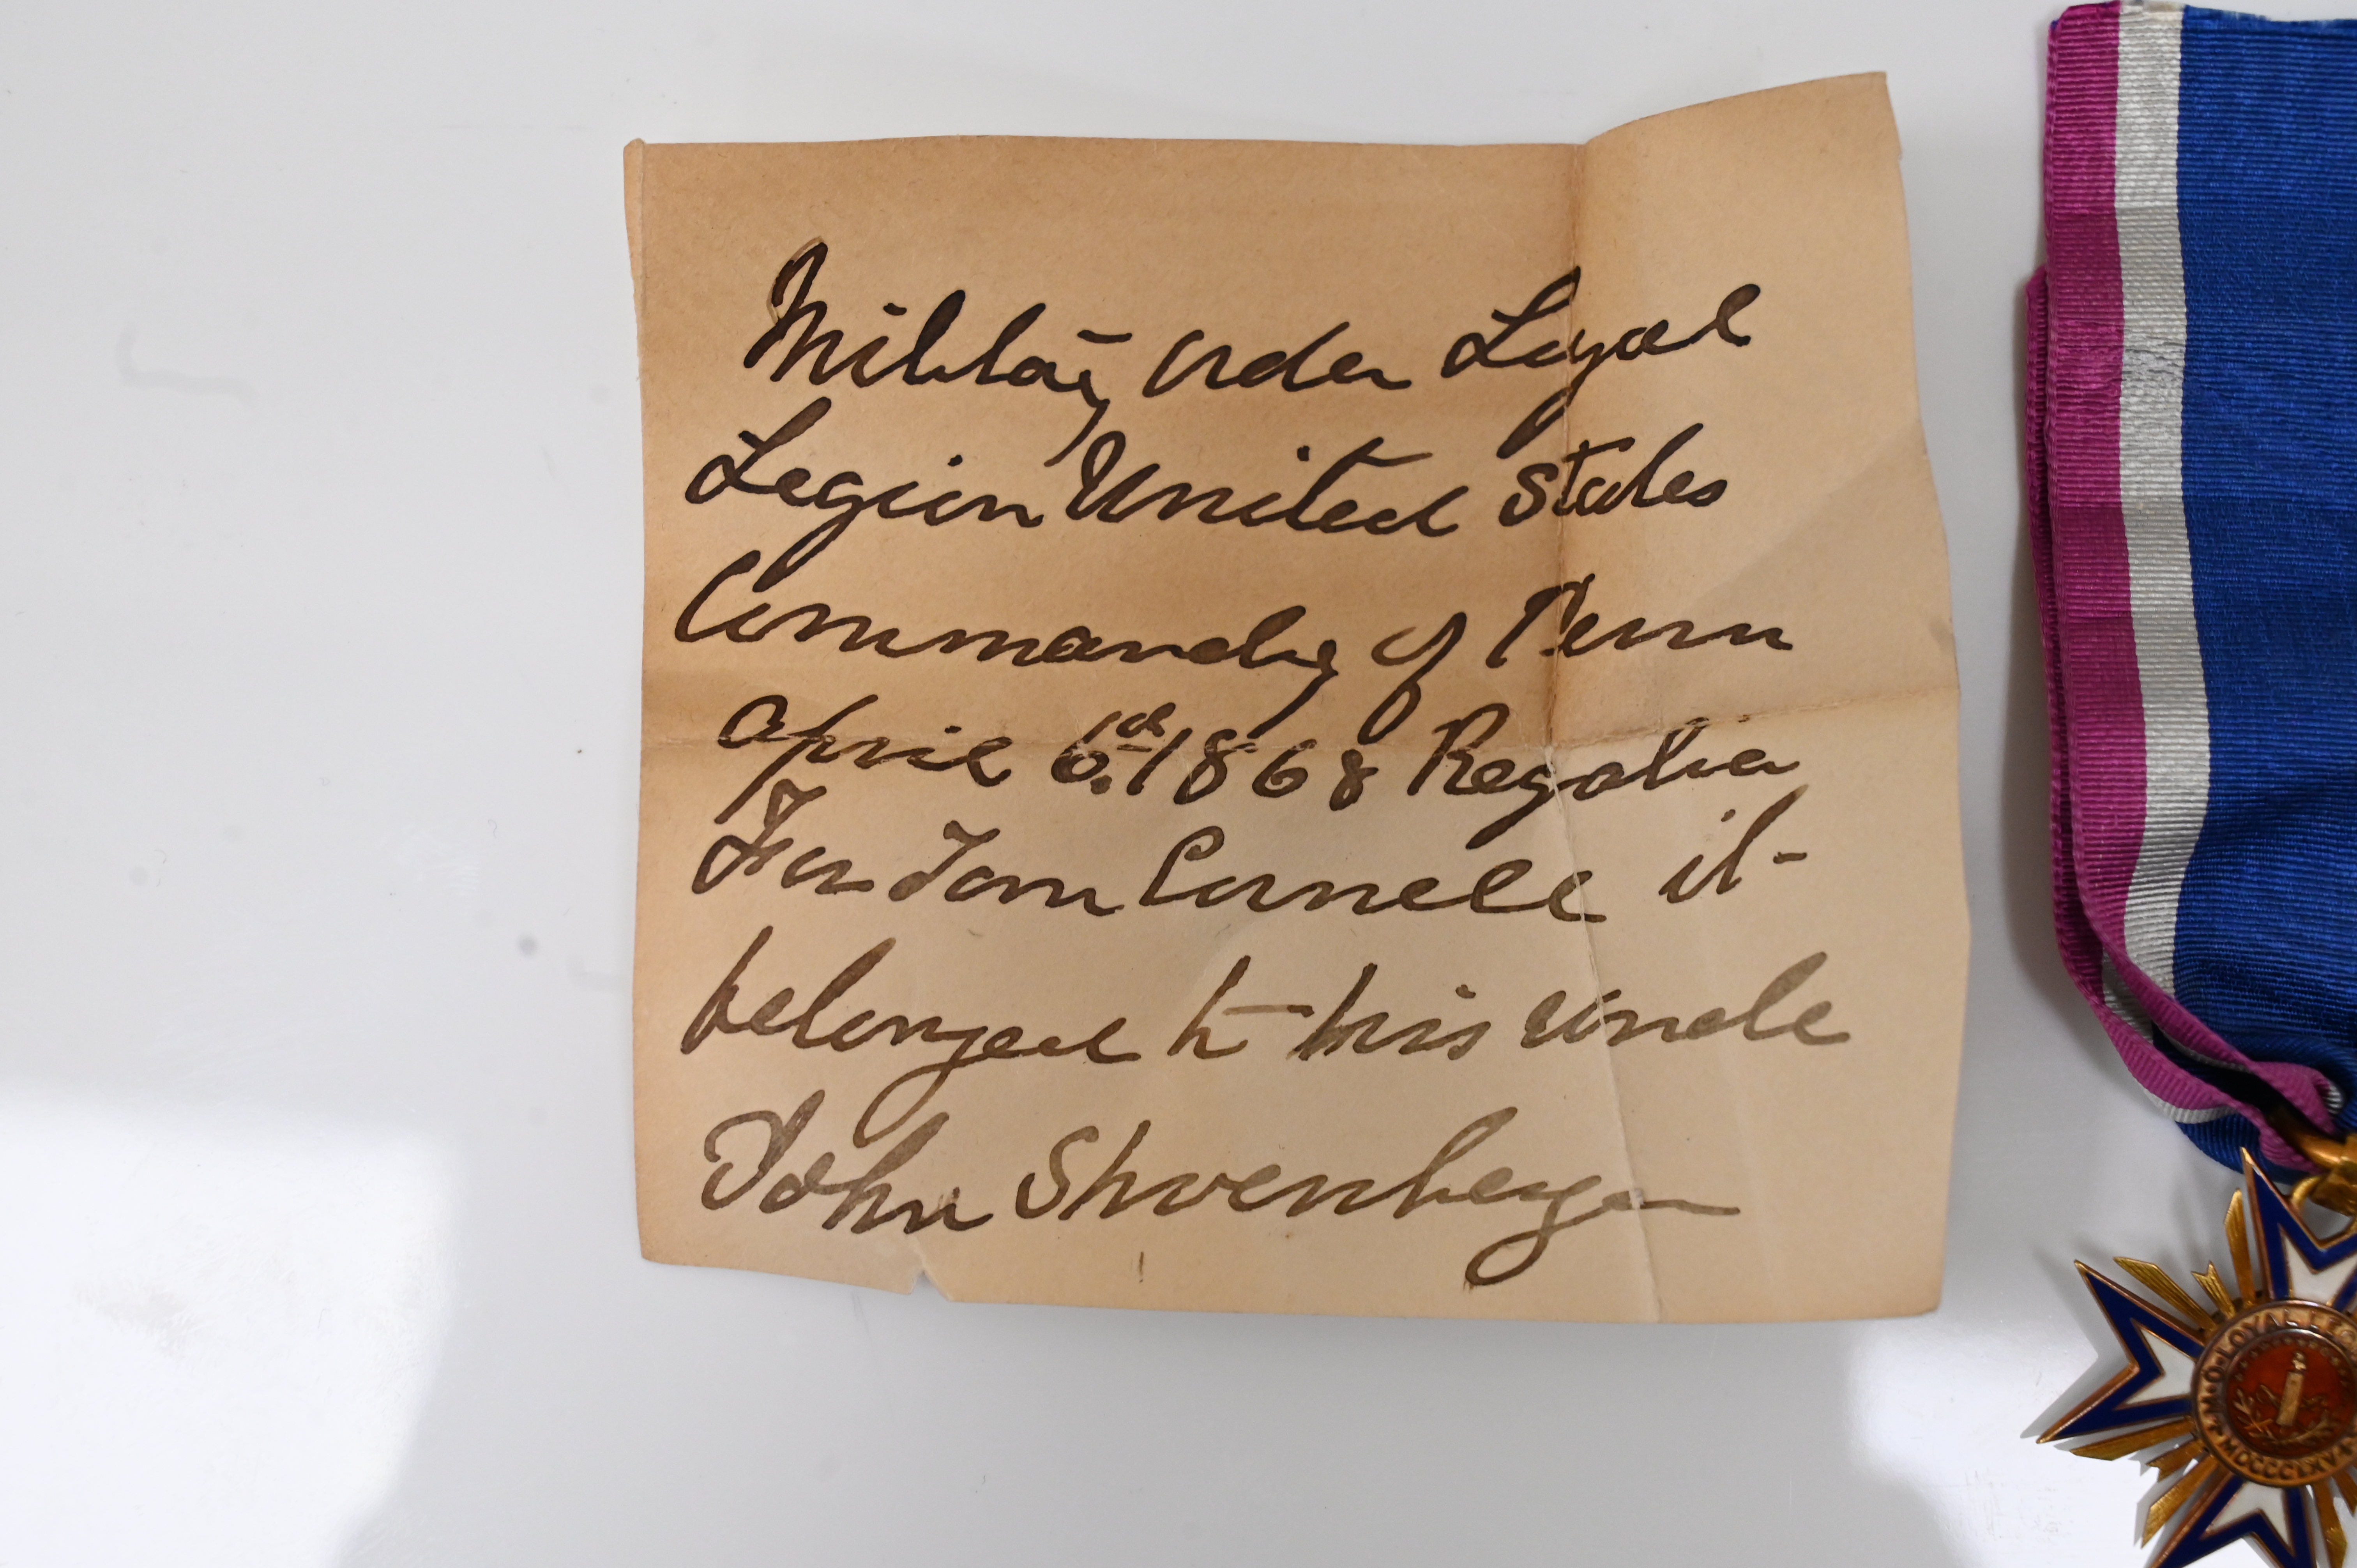 Military Order Loyal
Legion United States
Commandry of Penn
April 6th 1868 Regalia
For Tom Cornell it
belonged to his Uncle
John Shoenberger
M·O·LOYAL LEG
MDCCCLXV